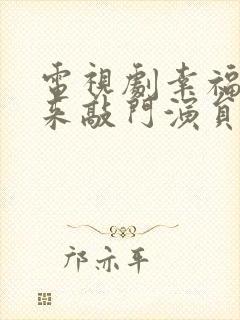 電視劇幸福
來敲門演員
邝亦平